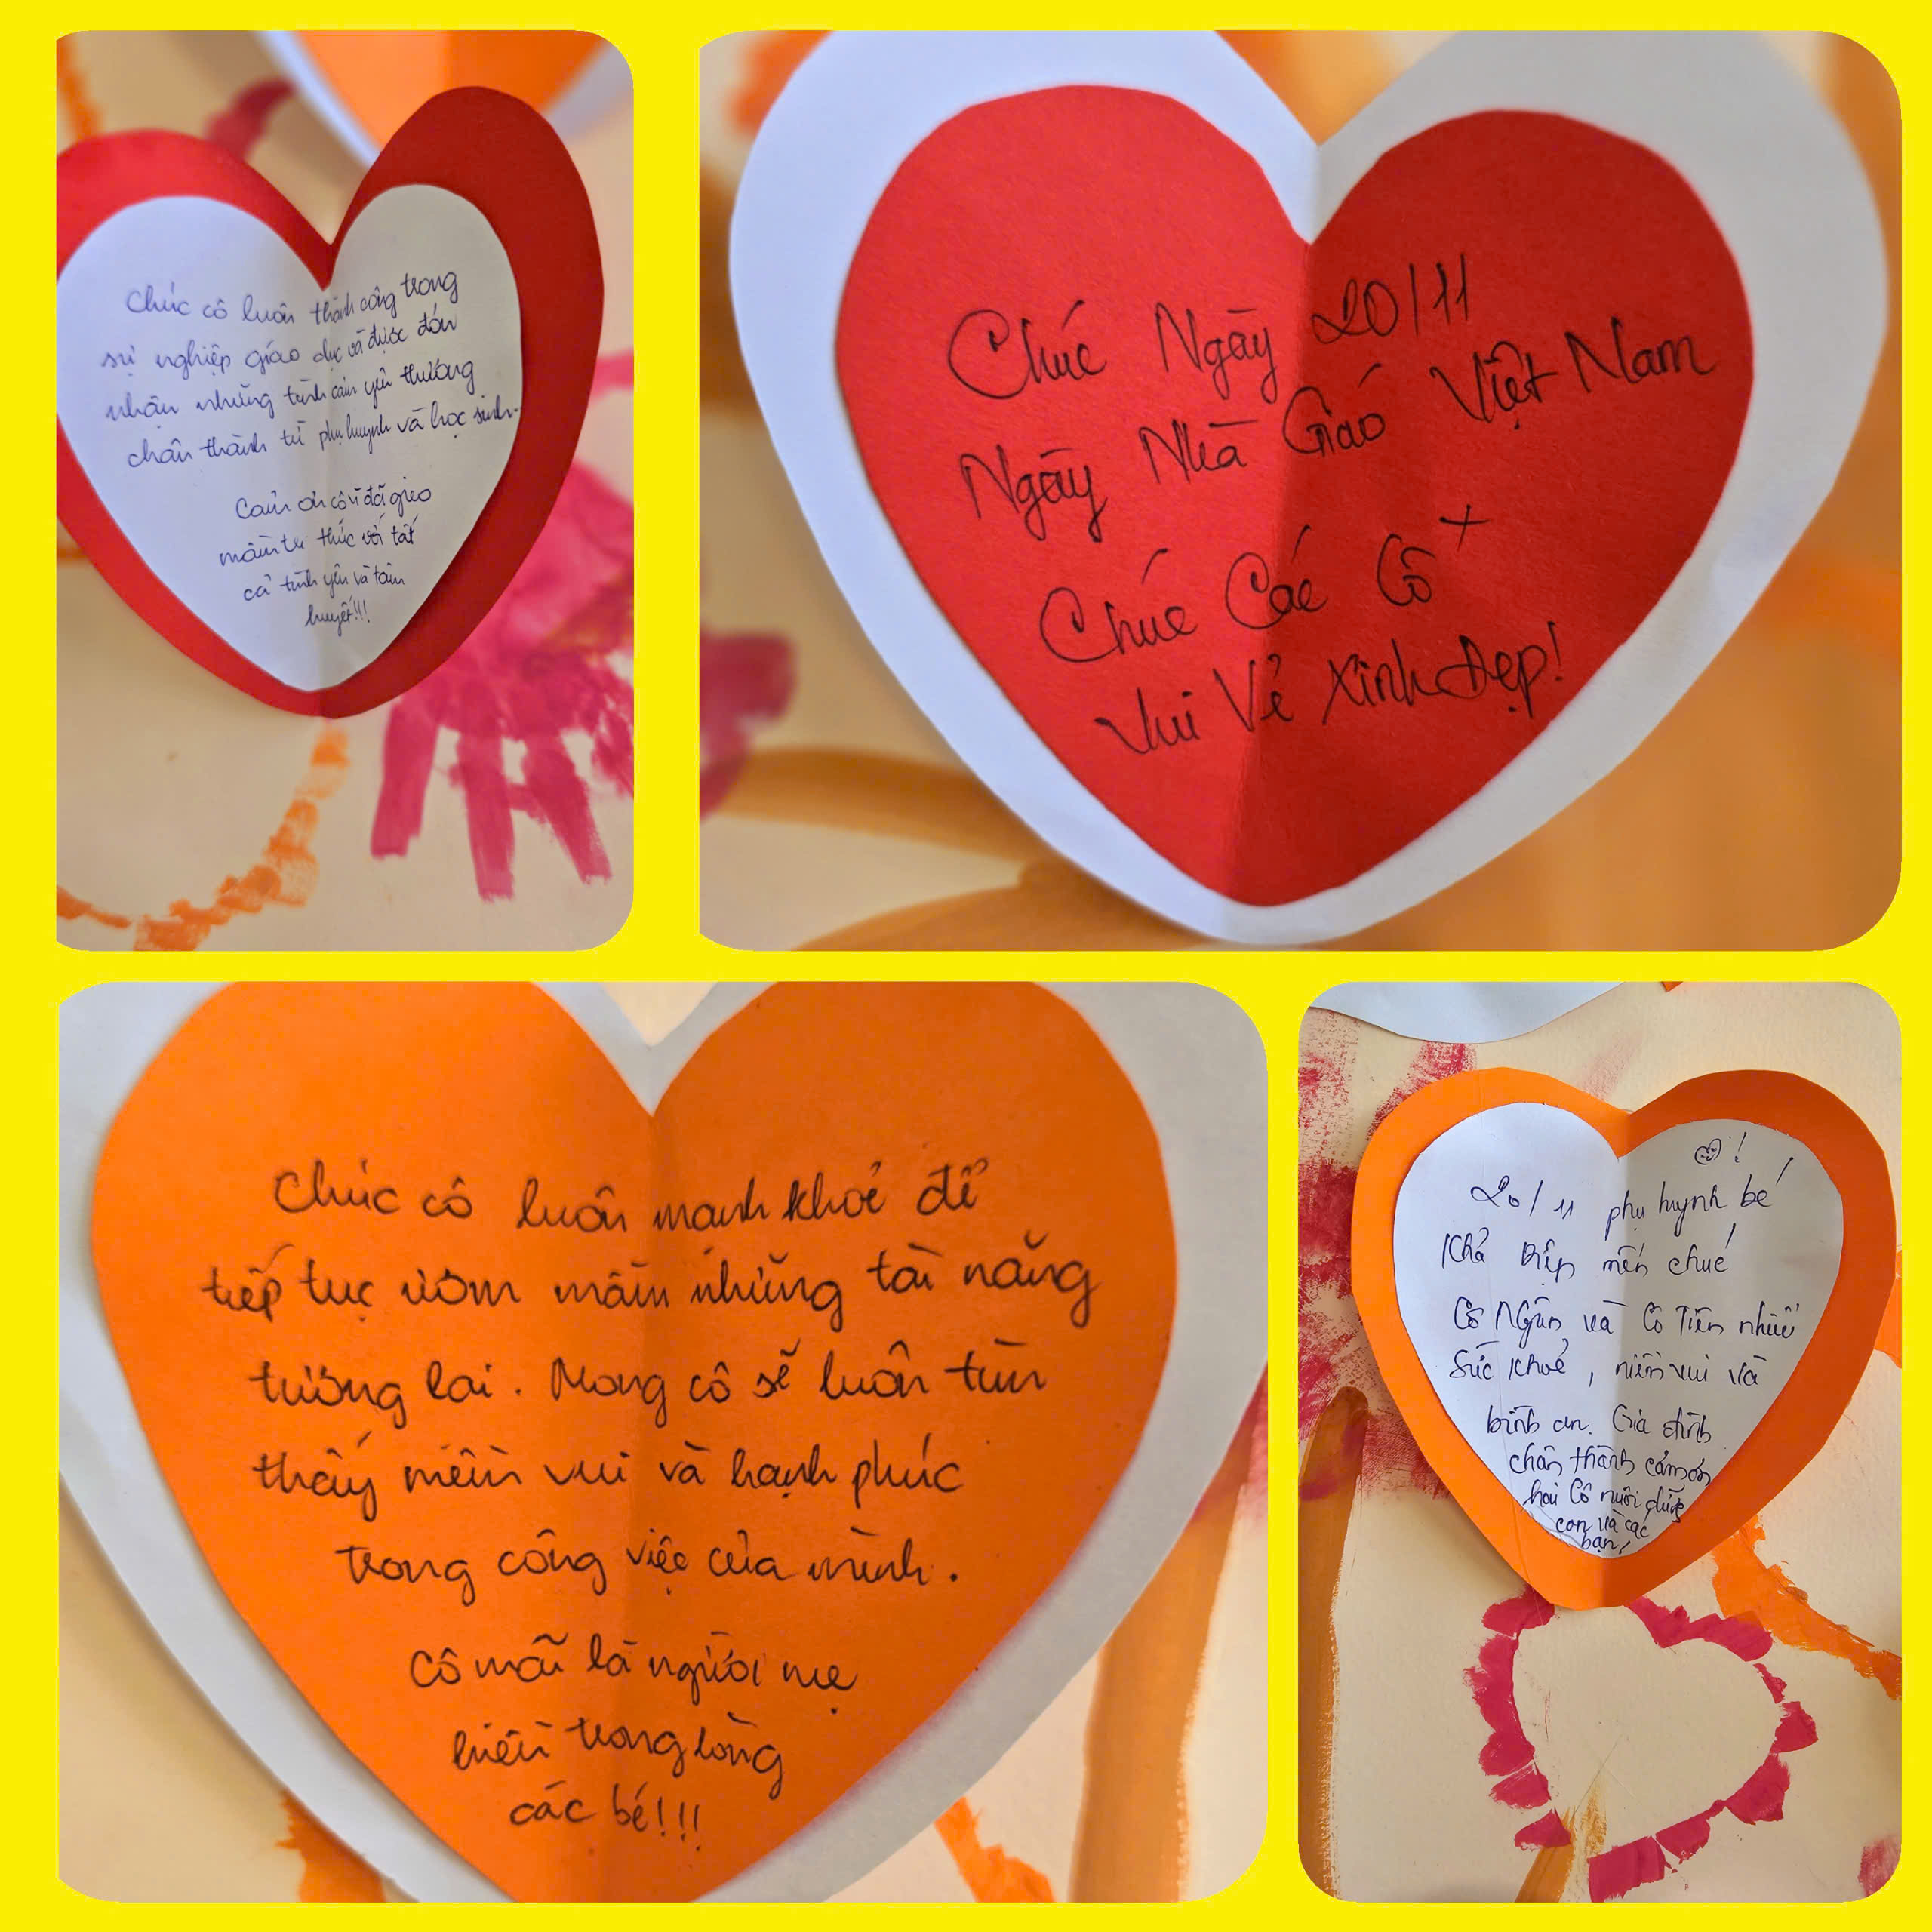 Chúc cô luôn thành công trong
sự nghiệp giáo dục và được đón
nhận những tình cảm yêu thương
chân thành từ phụ huynh và học sinh.
Cảm ơn cô vì đã gieo
mầm tri thức với tất
cả tình yêu và tâm
huyết!!!
Chúc Ngày 20/11
Ngày Nhà Giáo Việt Nam
Chúc Các Cô +
Vui Vẻ Xinh Đẹp!
Chúc cô luôn mạnh khoẻ để
tiếp tục ươm mầm những tài năng
tương lai. Mong cô sẽ luôn tìm
thấy niềm vui và hạnh phúc
trong công việc của mình.
Cô mãi là người mẹ
hiền trong lòng
các bé!!!
20/11 phụ huynh bé
Khả mến chúc
Cô Ngân và Cô Tiên nhiều
Sức khoẻ, niềm vui và
bình an. Gia đình
chân thành cảm ơn
hai Cô nuôi
con và các
bạn!